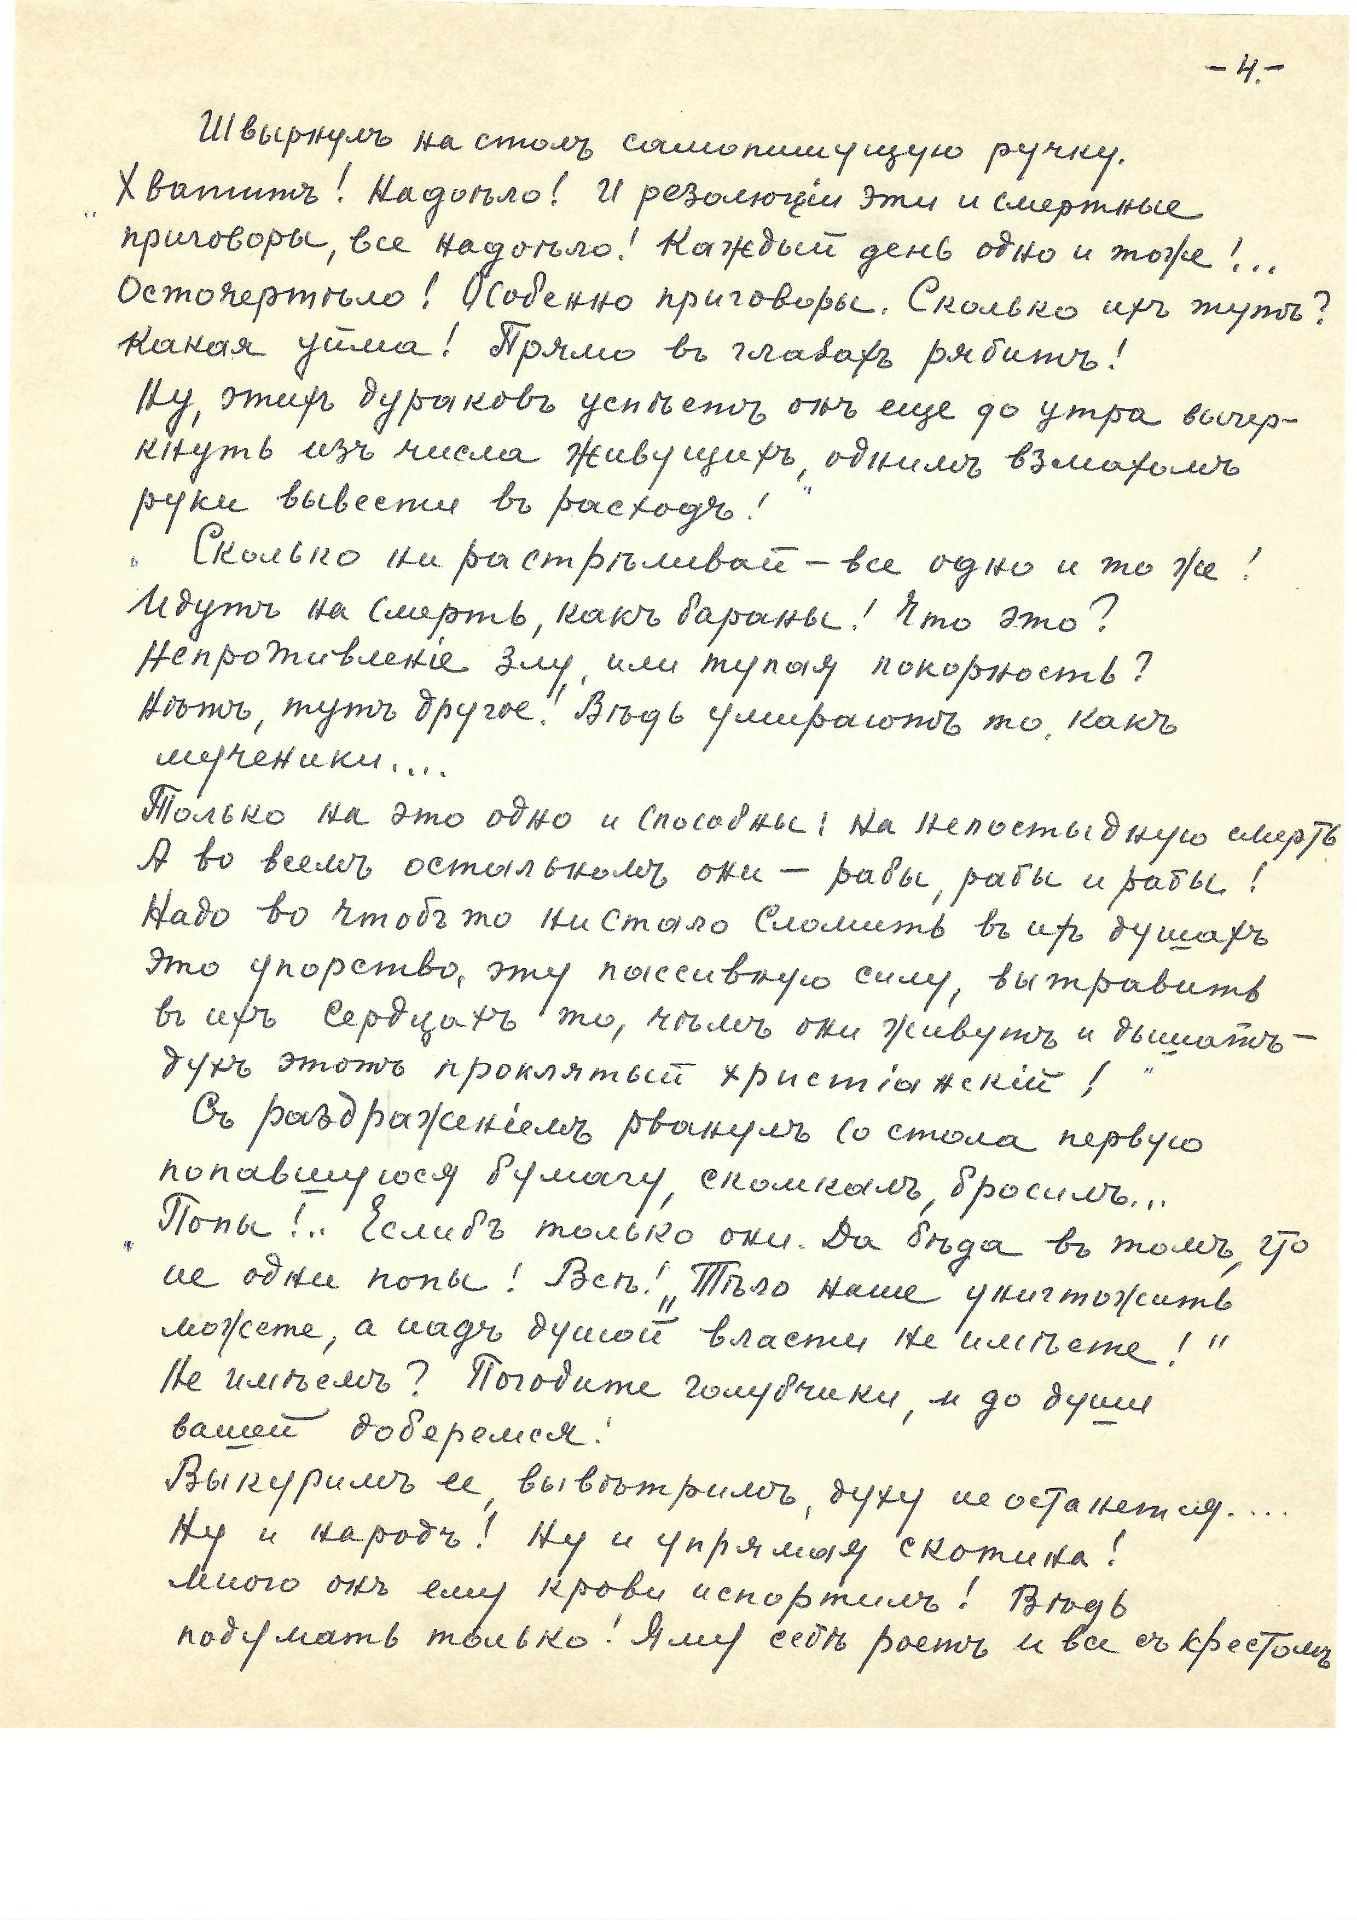 - 4. -
Швырнулъ на столъ самопишущую ручку.
„ Хватитъ! Надоѣло! И резолюціи эти и смертные
приговоры, все надоѣло! Каждый день одно и тоже!...
Осточертѣло! Особенно приговоры. Сколько ихъ тутъ?
Какая уйма! Прямо въ глазахъ рябитъ!
Ну, этихъ дураковъ успѣетъ онъ еще до утра вычер-
кнуть изъ числа живущихъ, однимъ взмахомъ
руки вывести въ расходъ! "
„ Сколько ни растрѣливай – все одно и то же!
Идутъ на смерть, какъ бараны! Что это?
Непротивленіе злу, или тупая покорность?
Нѣтъ, тутъ другое! Вѣдь умираютъ то, какъ
мученики....
Только на это одно и способны: на непостыдную смерть
А во всемъ остальномъ они – рабы, рабы и рабы!
Надо во чтобъ то ни стало сломить въ ихъ душахъ
это упорство, эту пассивную силу, вытравить
въ ихъ сердцахъ то, чѣмъ они живутъ и дышатъ –
духъ этотъ проклятый христіанскій! "
Съ раздраженіемъ рванулъ со стола первую
попавшуюся бумагу, скомкалъ, бросилъ...
„ Попы!.. Еслибъ только они. Да бѣда въ томъ, что
не одни попы! Всѣ! „Тѣло наше уничтожить
можете, а надъ душой власти не имѣете! "
Не имѣемъ? Погодите голубчики, и до души
вашей доберемся!
Выкуримъ ее, вывѣтримъ, духу не останется....
Ну и народъ! Ну и упрямая скотина!
Много онъ ему крови испортилъ! Вѣдь
подумать только! Яму себѣ роетъ и все съ крестомъ